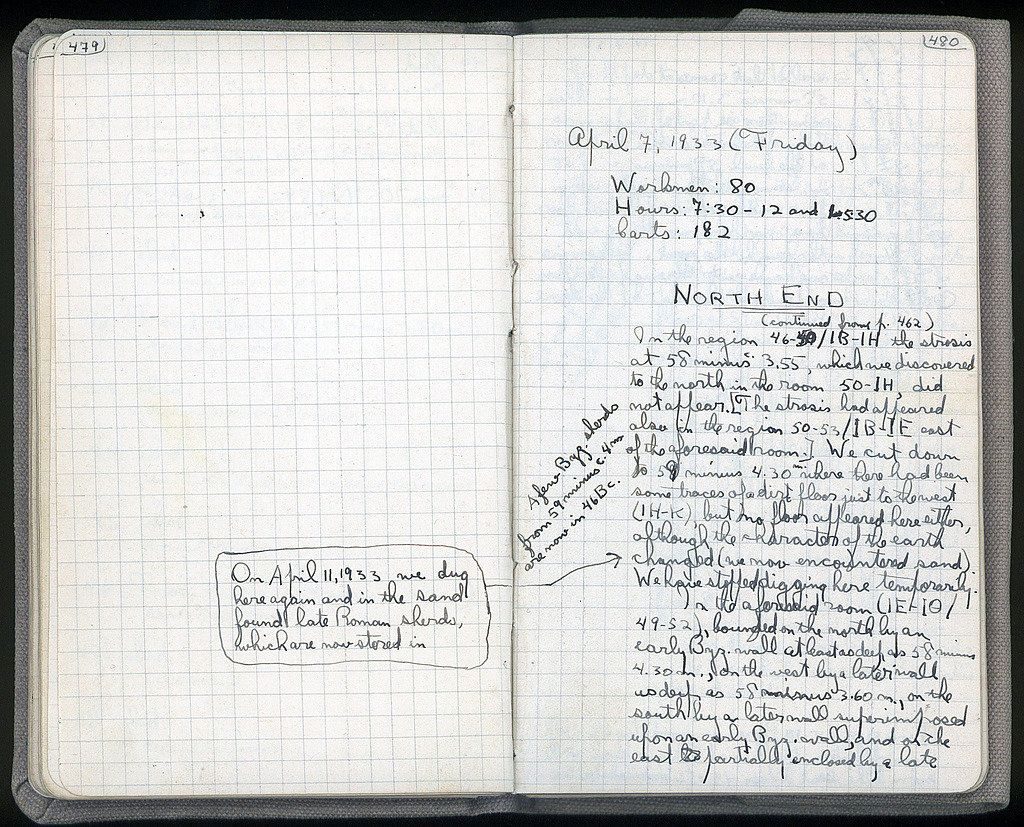 479
On April 11, 1933 we dug
here again and in the sand
found late Roman sherds,
which are now stored in
480
April 7, 1933 (Friday)
Workmen: 80
Hours: 7:30 - 12 and 1-5:30
Carts: 182
NORTH END
(continued from p. 462)
In the region 46-50/IB-IH the strosis
at 58 minus 3.55, which we discovered
to the north in the room 50-IH, did
not appear. [The strosis had appeared
also in the region 50-53/IB-IE east
of the aforesaid room.] We cut down
to 59 minus 4.30 m where there had been
some traces of a dirt floor just to the west
(IH-K), but no floor appeared here either,
although the character of the earth
changed (we now encountered sand).
We have stopped digging here temporarily.
A few Byz. sherds
from 59 minus c. 4 m
are now in 46 Bc.
In the aforesaid room (IE-IΘ/
49-52), bounded on the north by an
early Byz. wall at least as deep as 58 minus
4.30 m., on the west by a later wall
as deep as 58 minus 3.60 m., on the
south by a later wall superimposed
upon an early Byz. wall, and on the
east partially enclosed by a late